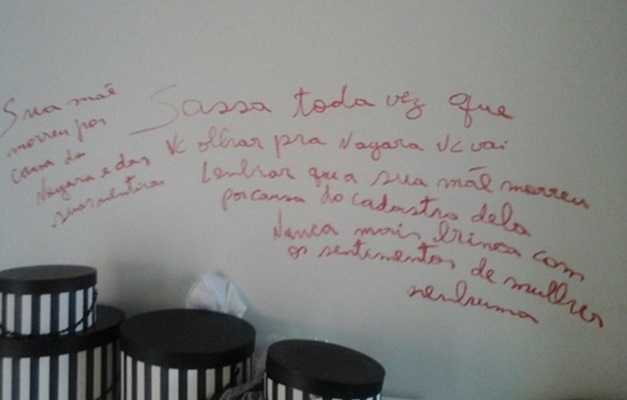 Sua mãe
morreu por
causa da
Nayara e das
suas mentiras
Sassa toda vez que
Vc olhar pra Nayara Vc vai
Lembrar que a sua mãe morreu
por causa do cadastro dela
Nunca mais brinca com
os sentimentos de mulher
nenhuma